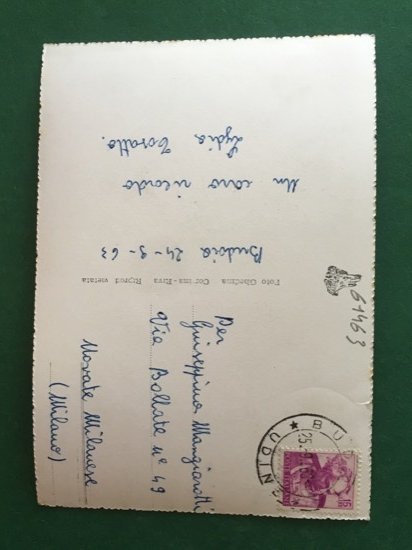 Budoia 24-9-63
Un caro ricordo
Lydia
Foto Ghedina Cortina - Riprod vietata
Giuseppina Mangiarotti
Via Bollate n° 49
Novate Milanese
(Milano)
61463
UDINE
25.